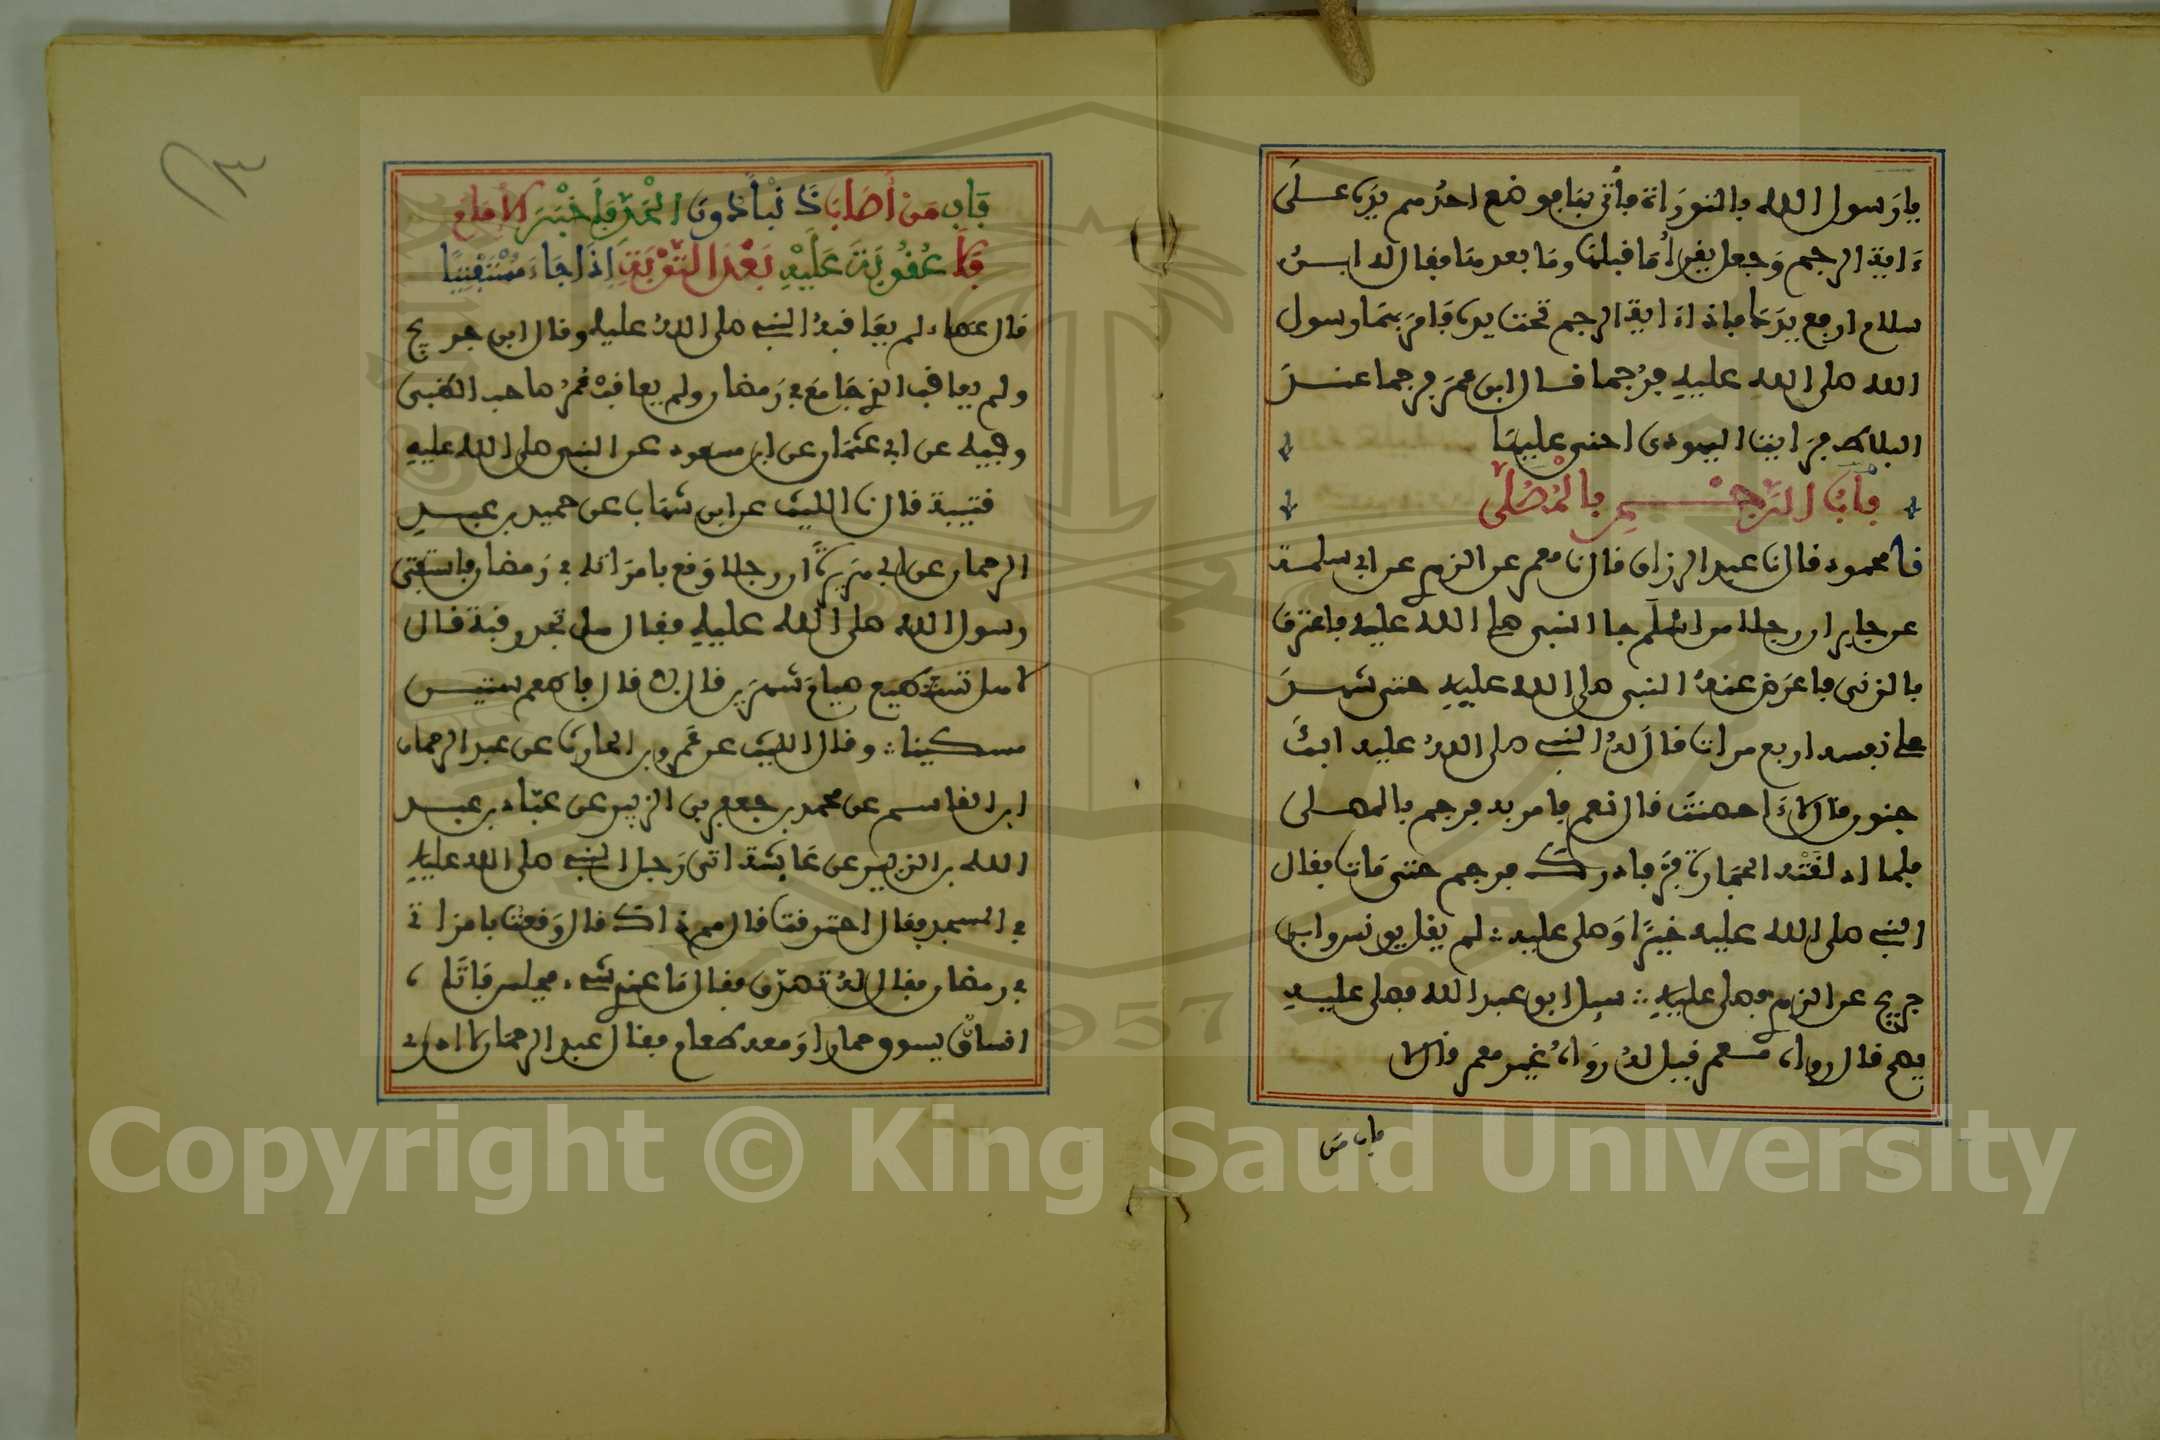 يا رسول الله بالتوراة فأتي بها فوضع احدهم يده على
ءاية الرجم وجعل يقرأ ما قبلها وما بعدها فقال له ابن
سلام ارفع يدك فاذا ءاية الرجم تحت يده فامر بهما رسول
الله صلى الله عليه فرجما قال ابن عمر فرجما عند
البلاط فرايت اليهودي احنى عليها
باب الرجم بالمصلى
نا محمود قال نا عبد الرزاق قال نا معمر عن الزهري عن ابي سلمة
عن جابر ان رجلا من اسلم جا النبي صلى الله عليه فاعترف
بالزنى فاعرض عنه النبي صلى الله عليه حتى شهد
على نفسه اربع مرات قال له النبي صلى الله عليه ابك
جنون قال لا ءاحصنت قال نعم فامر به فرجم بالمصلى
فلما اذلقته الحجارة فر فادرك فرجم حتى مات فقال
النبي صلى الله عليه خيرا وصلى عليه لم يقل يونس وابن
جريج عن الزهري وصلى عليه سيل ابو عبد الله فصلى عليه
يصح قال رواه معمر قيل له رواه غير معمر قال لا
باب من
باب من أصاب ذنبا دون الحد فأخبر الامام
فلا عقوبة عليه بعد التوبة إذا جاء مستفتيا
قال عطاء لم يعاقبه النبي صلى الله عليه وقال ابن جريج
ولم يعاقب الذي جامع في رمضان ولم يعاقب عمر صاحب الظبي
وفيه عن ابي عثمان عن ابن مسعود عن النبي صلى الله عليه
قتيبة قال نا الليث عن ابن شهاب عن حميد بن عبد
الرحمان عن ابي هريرة ان رجلا وقع بامراته في رمضان فاستفتى
رسول الله صلى الله عليه فقال هل تجد رقبة قال
لا هل تستطيع صيام شهرين قال لا قال فاطعم ستين
مسكينا وقال الليث عن عمرو بن الحارث عن عبد الرحمان
ابن القاسم عن محمد بن جعفر بن الزبير عن عباد بن عبد
الله بن الزبير عن عايشة اتى رجل النبي صلى الله عليه
في المسجد فقال احترقت قال مم ذاك قال وقعت بامراة
في رمضان فقال له تصدق فقال ما عندي شيء فجلس فاتاه
انسان يسوق حمارا ومعه طعام فقال عبد الرحمان لا ادري
١٣
Copyright © King Saud University
1957